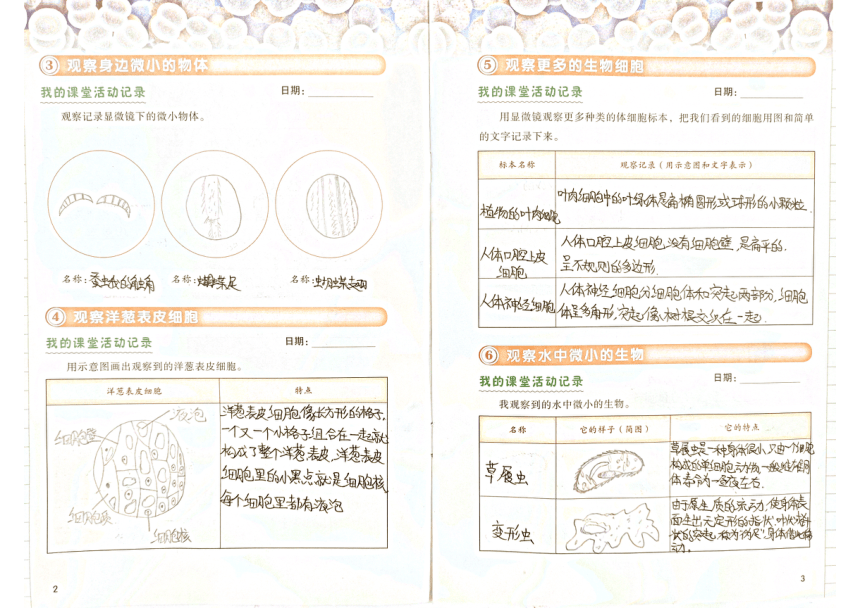 ③ 观察身边微小的物体
我的课堂活动记录
日期：
观察记录显微镜下的微小物体。
名称：蚕蛾的触角
名称：蝴蝶足
名称：蝴蝶翅
④ 观察洋葱表皮细胞
我的课堂活动记录
日期：
用示意图画出观察到的洋葱表皮细胞。
洋葱表皮细胞
特点
液泡
细胞壁
细胞质
细胞核
洋葱表皮细胞像长方形的格子,
一个又一个小格子组合在一起就
构成了整个洋葱表皮,洋葱表皮
细胞里的小黑点就是细胞核
每个细胞里都有液泡
2
⑤ 观察更多的生物细胞
我的课堂活动记录
日期：
用显微镜观察更多种类的体细胞标本，把我们看到的细胞用图和简单
的文字记录下来。
标本名称
观察记录（用示意图和文字表示）
植物的叶肉细胞
叶肉细胞中的叶绿体是扁椭圆形或球形的小颗粒.
人体口腔上皮
细胞
人体口腔上皮细胞,没有细胞壁,是扁平的.
呈不规则的多边形.
人体神经细胞
人体神经细胞分细胞体和突起两部分.细胞
体呈多角形,突起像树根交织在一起.
⑥ 观察水中微小的生物
我的课堂活动记录
日期：
我观察到的水中微小的生物。
名称
它的样子（简图）
它的特点
草履虫
草履虫是一种身体很小,只由一个细胞
构成的单细胞动物
体寿命为一昼夜左右.
变形虫
由于原生质的流动,使身体表
面生出无定形的指状、叶状
状的突起,称为"伪足",身体借此移
动。
3